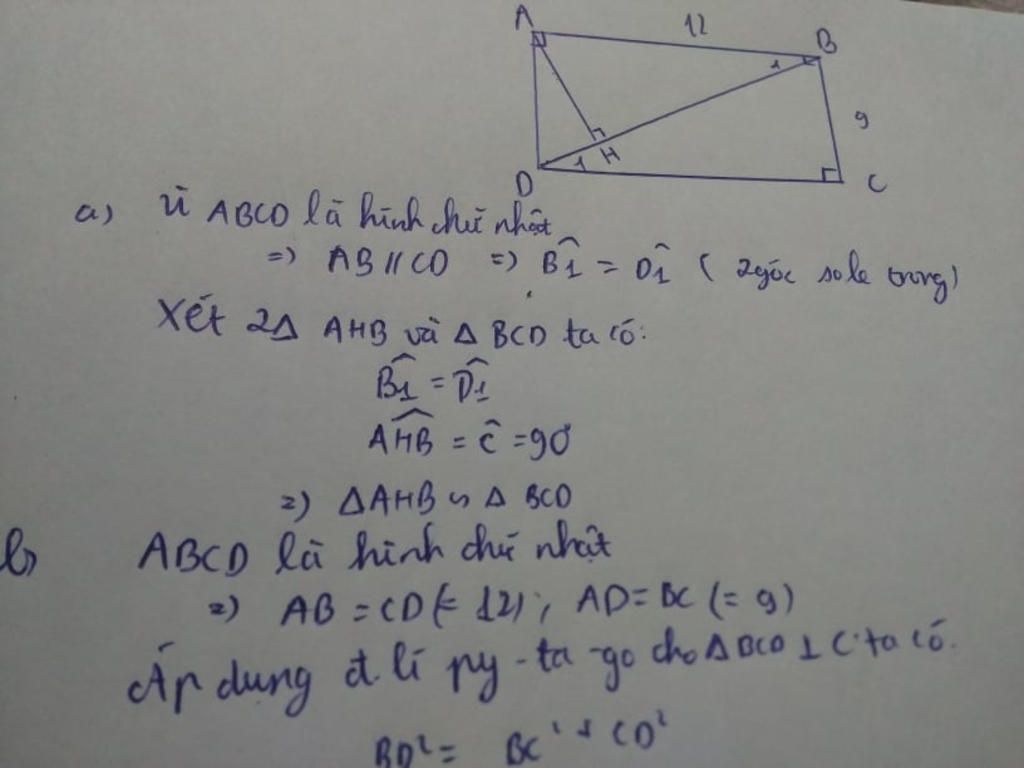 A
12
B
1
9
H
1
D
C
a) Vì ABCD là hình chữ nhật
=) AB // CD =) B̂1 = D̂1 ( 2 góc so le trong)
Xét 2Δ AHB và Δ BCD ta có:
B̂1 = D̂1
AĤB = Ĉ = 90°
=) Δ AHB ∽ Δ BCD
b) ABCD là hình chữ nhật
=) AB = CD (= 12) ; AD = BC (= 9)
Áp dụng đ. lí py - ta - go cho Δ BCD ⊥ C ta có.
BD² = BC² + CD²